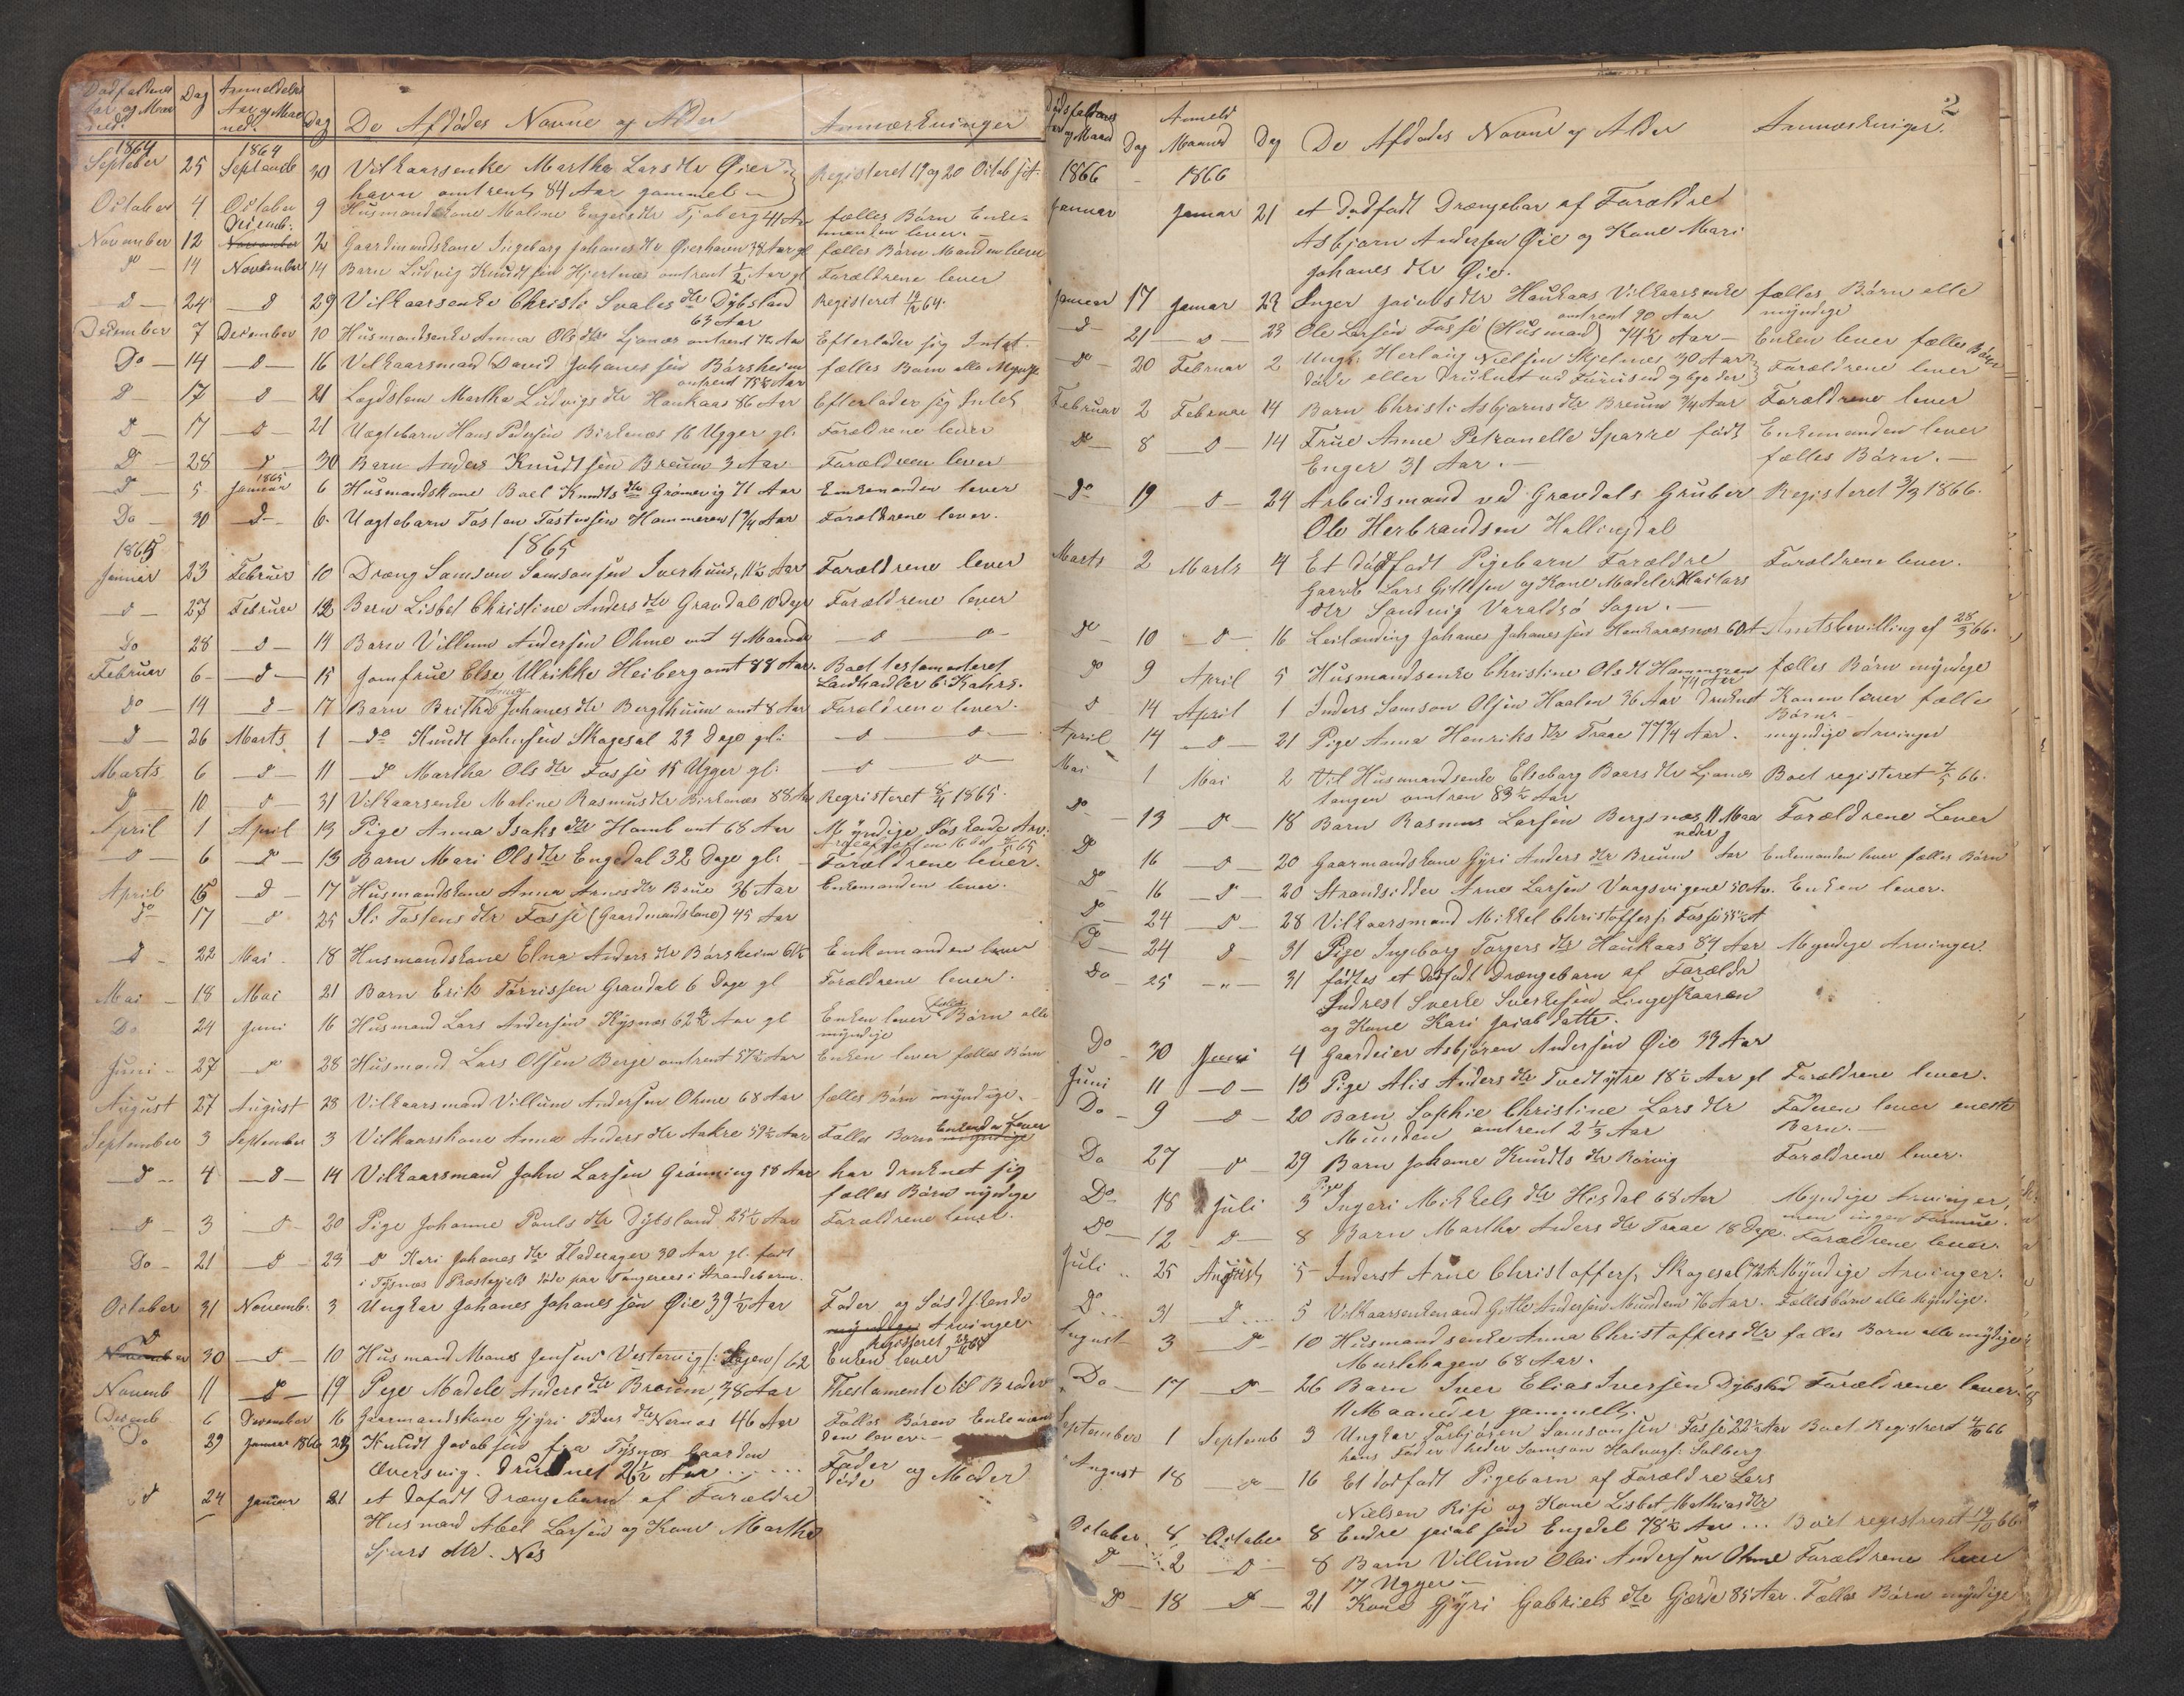 Dag
De Afdødes Navne og Alder
Anmærkninger
1864 1864
September 25 Septemb 30 Vilkaarsenke Martha Lars dtr Øier
havn omtrent 84 Aar gammel Registeret 19 og 20 Octob
October 4 October 9 Husmandskone Maline dtr 41 Aar fælles Børn Enke-
manden lever.
November 12 Decemb. 2 Gaardmandskone Ingeborg Johanes dtr Øierhavn 38 Aar gl fælles Børn Manden lever
d 14 November 14 Barn Ludvig Knudtsen omtrent 1/2 Aar gl Forældrene lever
d 24 d 29 Vilkaarsenke Christi dtr Dybsland
63 Aar Registeret 64.
December 7 December 10 Husmandsenke Anna Ols dtr omtrent 72 Aar Efterlader sig Intet.
Do 14 d 16 Vilkaarsmand David Johanessen Børsheim
omtrent 75 1/2 Aar fælles Børn alle Mynd.
D 17 d 21 Lægdslem Martha Ludvigs dtr Haukaas 86 Aar Efterlader sig Intet
d 17 d 21 Uægtebarn Hans Pedersen Birkenæs 16 Ugger gl. Forældrene lever
D 28 d 30 Barn Anders Knudtsen Breum 3 Aar Forældreen lever
1865
d 5 Januar 6 Husmandskone Boel Knudts dtr Grønevig 71 Aar Enkemanden lever
Do 30 d 6 Uægtebarn Tosten Tostensen Hammeren 1 3/4 Aar Forældrene lever.
1865 1865
Januar 23 Februar 10 Dræng Samson Samsonsen Iverhuus, 11 1/2 Aar Forældrene lever
d 27 Februar 12 Barn Lisbet Christine Anders dtr Gravdal 10 Dage Forældrene lever
Do 28 d 14 Barn Villum Andersen Ohme omt 4 Maaned d d
Februar 6 d 15 Jomfrue Else Ulrikke Heiberg omt 88 Aar. Boet testamenteret
Landhandler C. Kahrs.
do 14 d 17 Barn Britha Anna Johanes dtr Berghuum omt 8 Aar Forældrene lever.
d 26 Marts 1 do Knudt Johnsen Skogesal 23 Dage gl. d d
Marts 6 d 11 d Martha Ols dtr Fosse 15 Ugger gl. d d
d 10 d 31 Vilkaarsenke Maline Rasmus dtr Birkenæs 88 Aar Regristeret 5/4 1865.
April 1 April 13 Pige Anna Isaks dtr Homb omt 68 Aar Myndige Søskende Arv.
d 6 d 13 Barn Mari Ols dtr Engedal 32 Dage gl. Forældrene lever.
April 15 d 17 Husmandskone Anna Arnes dtr Brue 36 Aar Enkemanden lever.
do 17 d 25 Tostens dtr Fosse (Gaardmandskone) 45 Aar
d 22 Mai 18 Husmandskone Elna Anders dtr Børsheim 61 1/2 Enkemanden lever
Mai 18 Mai 21 Barn Erik Tørrissen Gravdal 6 Dage gl Forældrene lever.
Do 24 Juni 16 Husmand Lars Andersen 62 3/4 Aar gl Enken lever fælles Børn alle
myndige
Juni 27 d 28 Husmand Lars Olsen Berge omtrent 57 1/2 Aar Enken lever fælles Børn
August 27 August 28 Vilkaarsmand Villum Andersen Ohme 68 Aar fælles Børn myndige.
September 3 September 3 Vilkaarskone Anna Anders dtr Aakre 59 1/2 Aar Fælles Børn Enkemanden lever
d 4 d 14 Vilkaarsmand John Larsen Grønning 58 Aar har druknet sig
fælles Børn myndige
d 3 d 20 Pige Johanne Pouls dtr Dybsland 25 1/2 Aar Forældrene lever.
Do 21 d 23 d Kari Johanes dtr Fladerager 30 Aar gl. født
i Tysnæs Præstegjeld døde paa i Strandebarm.
October 31 Novemb. 3 Ungkar Johanes Johanessen Øie 39 1/2 Aar Fader og Søsdskende
Arvinger
Registeret
d 30 d 10 Husmand Mons Jensen Vestervig 62 Enken lever
Novemb 11 d 19 Pige Madele Anders dtr Breum, 38 Aar Thestamente til Broder
Decemb 6 December 16 Gaarmandskone Gjyri Peders dtr Nernæs 46 Aar Fælles Børen Enkeman
den lever.
Do 29 Januar 1866 23 Knudt Jacobsen fra Tysnæs Gaarden
Oversvig. Druknet 26 1/2 Aar Fader og Moder
døde
d 24 Januar 21 et døfødt Drængebarn af Forældre
Husmand Abel Larsen og Kone Martha
Sjurs dtr. Nes
2
Dag
Dag
De Afdødes Navne og Alder
Anmærkninger.
1866 1866
Januar Januar 21 et dødfødt Drængebar af Forældre
Asbjørn Andersen Øie og Kone Mari
Johanes dtr Øie.
Januar 17 Januar 23 Inger Jacobs dtr Haukaas Vilkaarsenke
omtrent 90 Aar fælles Børn alle
myndige
d 21 d 23 Ole Larsen Fosse (Husmand) 74 1/2 Aar Enken lever fælles Børn
d 20 Februar 2 Ungk. Herlaug Nielsen Skjelnes 30 Aar
døde eller druknet ved Forældrene lever
Februar 2 Februar 14 Barn Christi Asbjørns dtr Breum 3/4 Aar Forældrene lever
d 8 d 14 Frue Anne Petronelle Sparre født
Enger 31 Aar. Enkemanden lever
fælles Børn.
do 19 d 24 Arbeidsmand ved Gravdals Gruber
Ole Herbrandsen Hallingdal Registeret 3/3 1866.
Marts 2 Marts 4 Et dødfødt Pigebarn Forældre
Gaardb Lars Gittlsen og Kone Madele
dtr Sandvig Varaldsø Sogn. Forældrene lever.
d 10 d 16 Leilænding Johanes Johanessen Haukaasnæs 60 A Amtsbevilling af 28/3 66.
d 9 April 5 Husmandsenke Christine Ols dt Hammeren
Aar fælles Børn myndige
d 14 April 1 Inders Samson Olsen Haalen 36 Aar druknet Konen lever fælle
Børn
April 14 d 21 Pige Anna Henriks dtr Traae 77 3/4 Aar. myndige Arvinger
Mai 1 Mai 2 Vil Husmandsenke Elseborg Boers dtr Ljones
tangen omtren 83 1/2 Aar Boet registeret 7/5 66.
do 13 d 18 Barn Rasmus Larsen Bergsnæs 11 Maa
neder g Forældrene Lever
d 16 d 20 Gaarmandskone Gjyri Anders dtr Breum Aar Enkemanden lever fælles Børn
Do 16 d 20 Strandsidder Arne Larsen Vaagsvigene 50 Aar. Enken lever.
d 24 d 28 Vilkaarsmand Mikkel Christoffers. Fosse
d 24 d 31 Pige Ingeborg Torgers dtr Haukaas 84 Aar Myndige Arvinger.
Do 25 31 fødtes et dødfødt Drængebarn af Forældr
Indrest Sverke Sverkesen Lingeskaaren
og Kone Kari Jacob dattr.
Do 30 Juni 4 Gaardeier Asbjøren Andersen Øie 33 Aar
Juni 11 d 13 Pige Alis Anders dtr Tvedt ytre 18 1/2 Aar gl Forældrene lever.
Do 9 d 20 Barn Sophie Christine Lars dtr
Munden omtrent 2 1/3 Aar Faderen lever eneste
Barn.
Do 27 d 29 Barn Johanne Knudts dtr Rørvig Forældrene lever.
Do 18 Juli 3 Pige Ingeri Mikkels dtr Hisdal 68 Aar Myndige Arvinger,
men ingen Formue.
Do 12 d 8 Barn Martha Anders dtr Traae 18 Dage. Forældrene lever.
Juli 25 August 5 Inderst Arne Christoffers. Skogesal Myndige Arvinger.
Do 31 d 5 Vilkaarsenkemand Gitle Andersen Mundem 76 Aar. Fællesbørn alle Myndige.
August 3 d 10 Husmandsenke Anna Christoffers dtr
Murlehagen 68 Aar. fælles Børn alle mydige
Do 17 d 26 Barn Iver Elias Iversen Dybsld
11 Maaneder gammelt. Forældrene lever.
September 1 Septemb 3 Ungkar Torbjøren Samsonsen Fosse 22 1/2 Aar Boet Registrert 4/10 66
hans Fader heder Samson Halvors. Solberg
August 18 d 16 Et dødfødt Pigebarn af Forældre Lars
Nielsen Rise og Kone Lisbet Mathias dtr
October 8 October 8 Endre Jacobsen Engedal 78 1/2 Aar Boet registreret 19/10 66.
d 2 d 8 Barn Villum Olai Andersen Ohme
17 Ugger Forældrene lever
d 18 d 21 Kone Gjyri Gabriels dtr Gjerde 85 Aar. Fælles Børn myndige